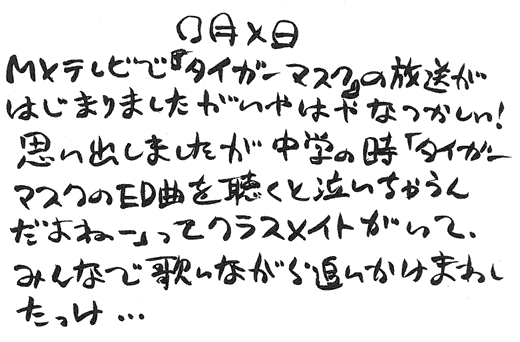 〇月×日
MXテレビで『タイガーマスク』の放送が
はじまりましたがいやはやなつかしい!
思い出しましたが中学の時「タイガー
マスクのED曲を聴くと泣いちゃうん
だよねー」ってクラスメイトがいて、
みんなで歌いながら追いかけまわし
たっけ…